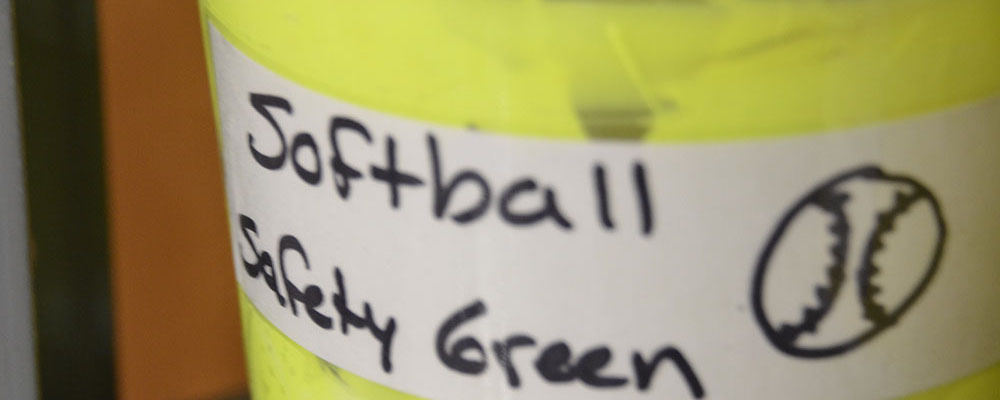 Softball
Safety Green